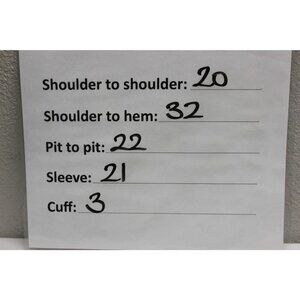 Shoulder to shoulder: 20
Shoulder to hem: 32
Pit to pit: 22
Sleeve: 21
Cuff: 3